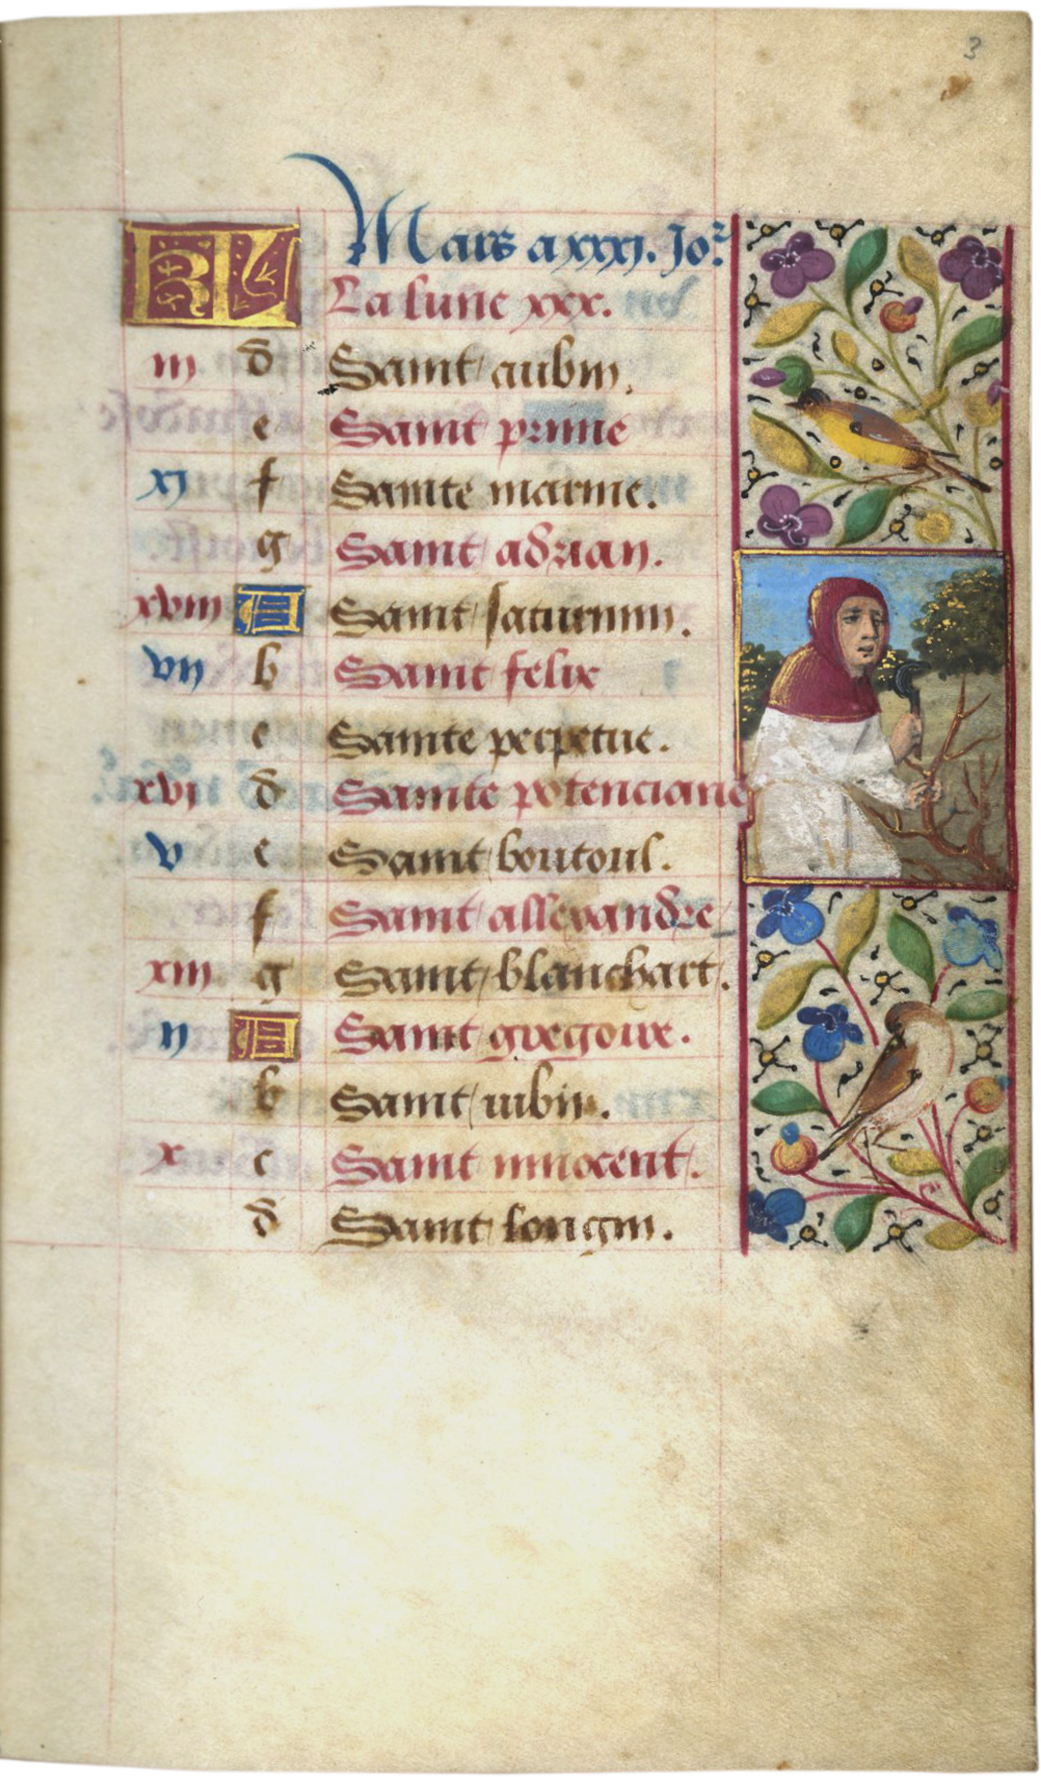 3
KL Mars a xxxi. Jor
La lune xxx.
iii d Saint aubin.
e Saint prime
xi f Sainte marine.
g Saint adrian.
xviii A Saint saturnin.
vii b Saint felix
c Sainte perpetue.
xvi d Sainte potenciane
v e Saint boutoul.
f Saint allexandre
xiii g Saint blanchart.
ii A Saint gregoire.
b Saint
x c Saint innocent.
d Saint longin.